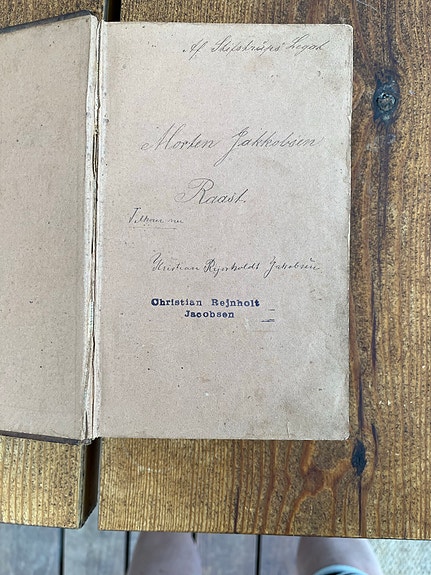 Af Skibstrups Legat
Morten Jakkobsen
Raast.
nu
Kristian Rejnholdt Jakobsen
Christian Rejnholt
Jacobsen